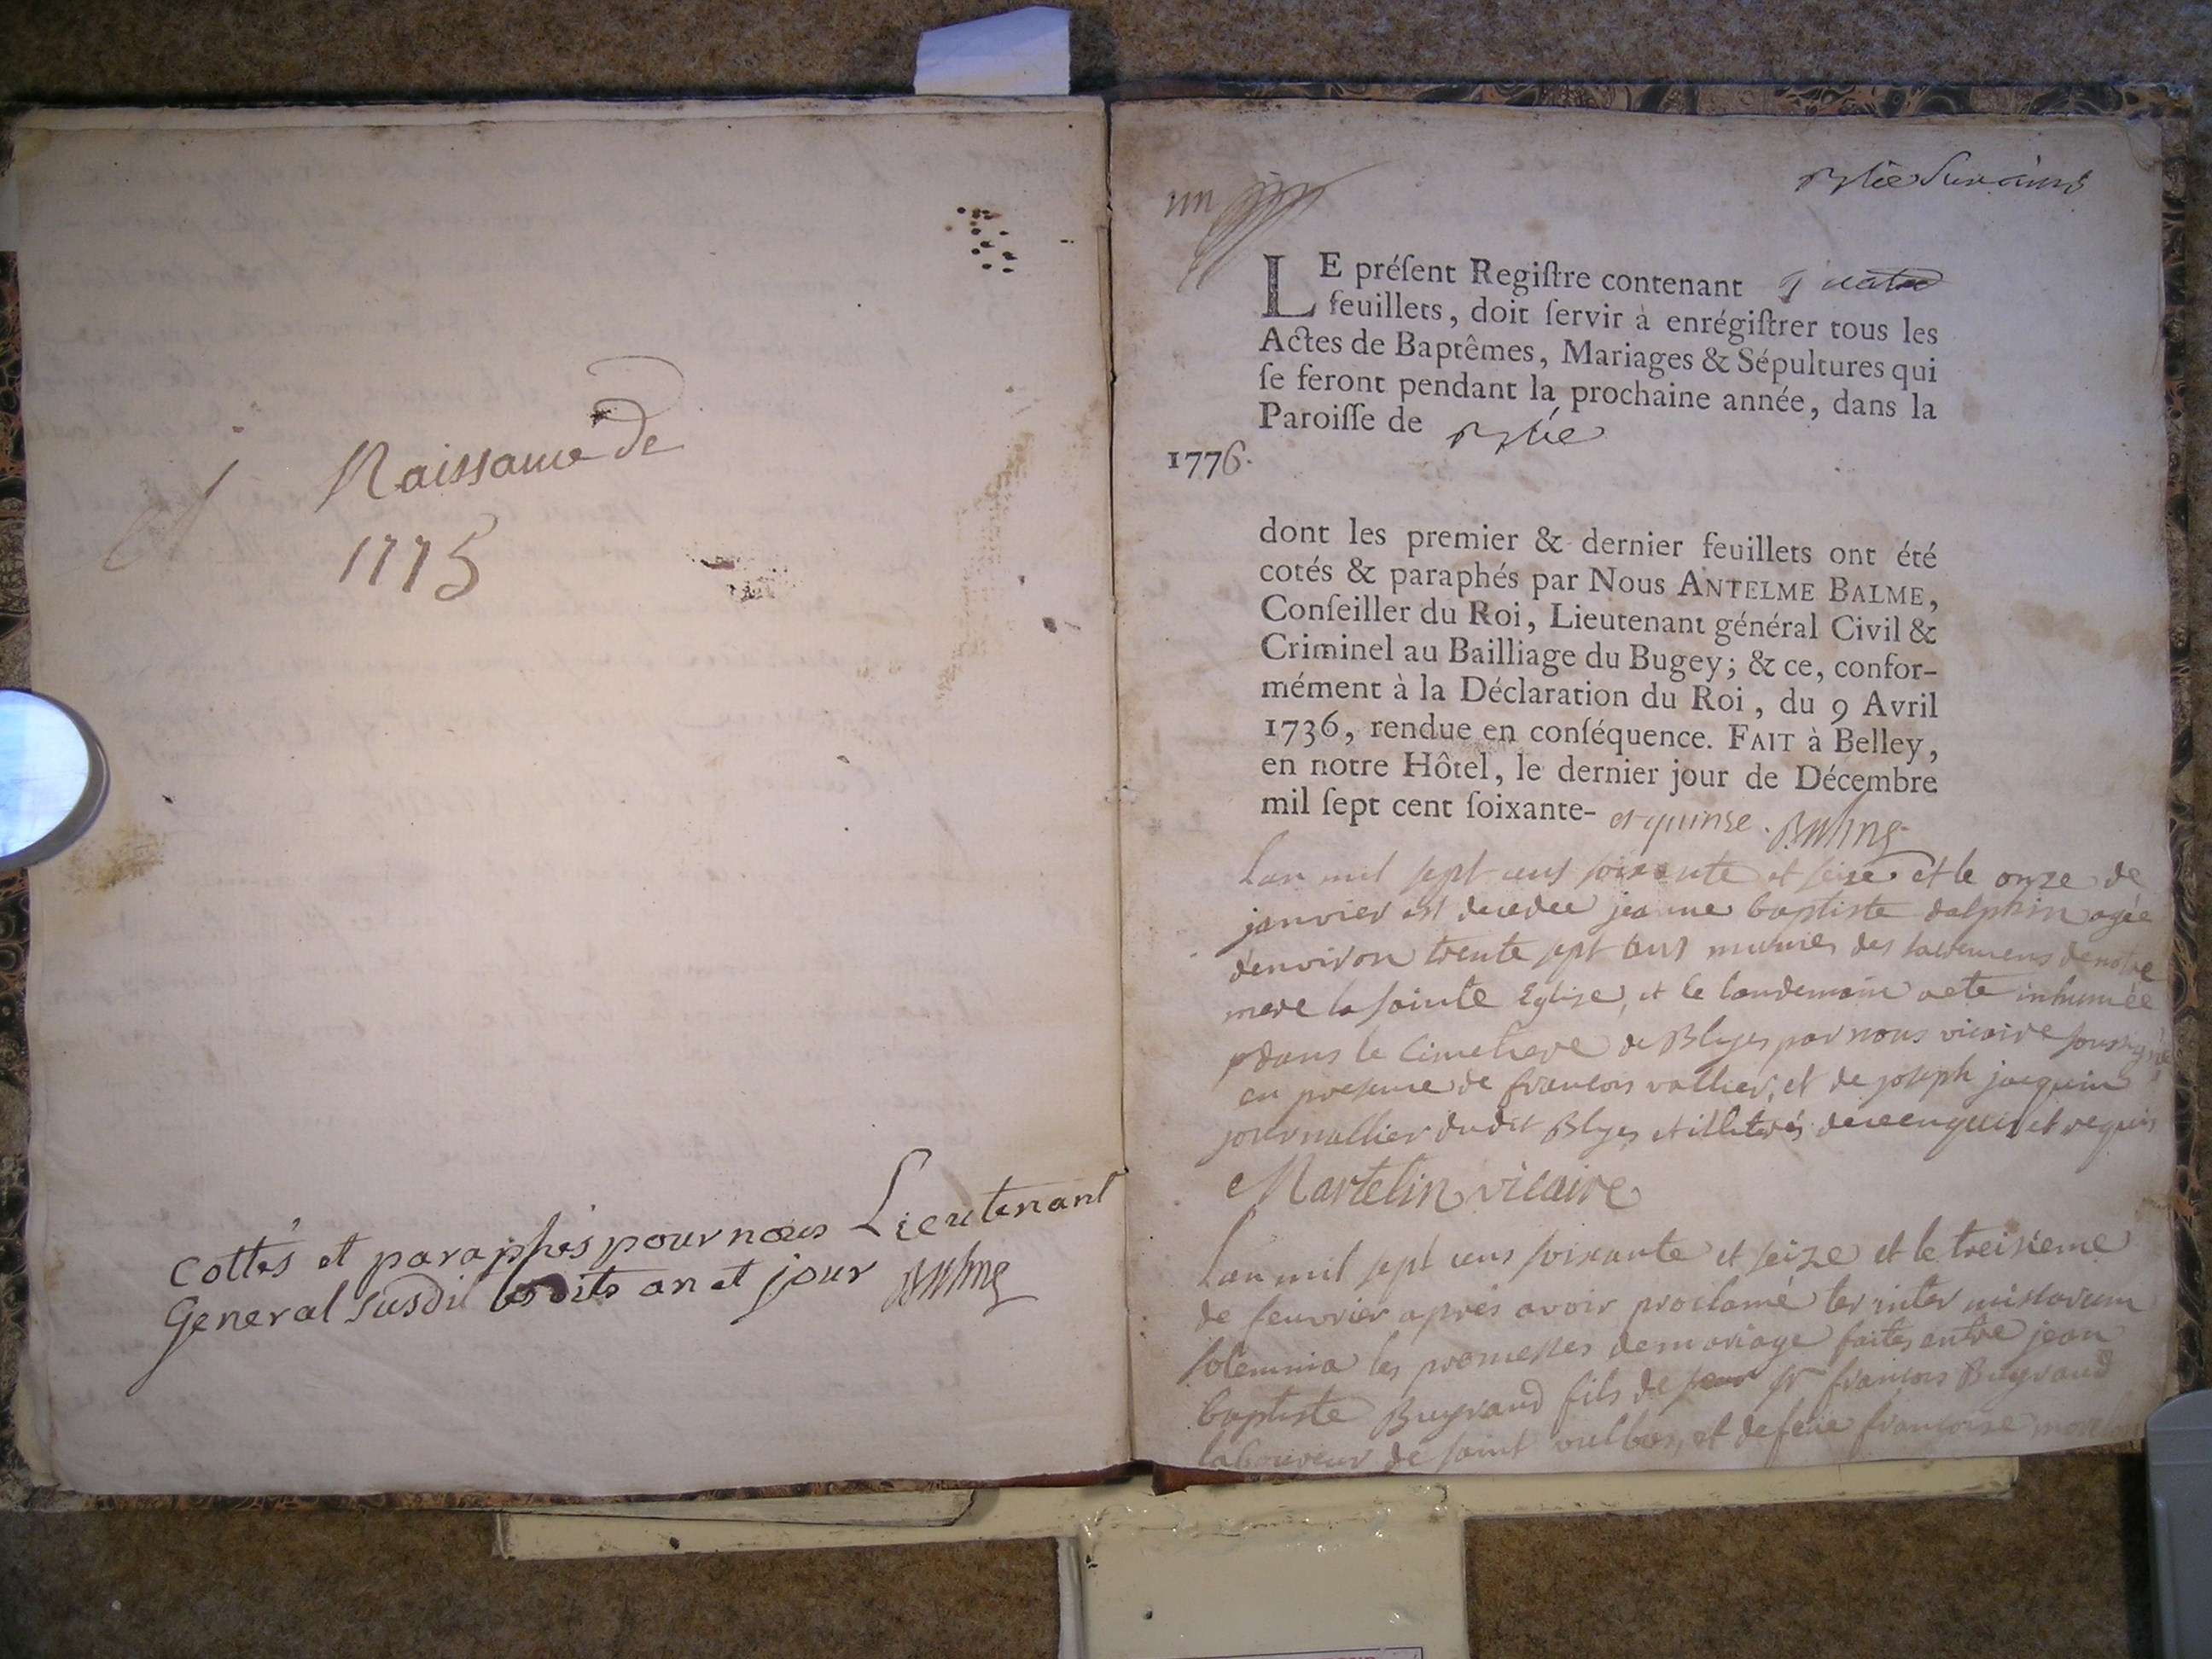 Naissance de
1775
Cottés et paraphés pour nous Lieutenant
General susdit an et jour
un
LE préſent Regiſtre contenant quatre
feuillets, doit ſervir à enrégiſtrer tous les
Actes de Baptêmes, Mariages & Sépultures qui
ſe feront pendant la prochaine année, dans la
Paroiſſe de
1776.
dont les premier & dernier feuillets ont été
cotés & paraphés par Nous ANTELME BALME,
Conſeiller du Roi, Lieutenant général Civil &
Criminel au Bailliage du Bugey; & ce, confor-
mément à la Déclaration du Roi, du 9 Avril
1736, rendue en conſéquence. FAIT à Belley,
en notre Hôtel, le dernier jour de Décembre
mil ſept cent ſoixante- et quinse.
Lan mil sept cens soixante et seize et le onze de
janvier est decedee jeanne baptiste dalphin agée
d'environ trente sept ans munies des sacremens de notre
mere la sainte Eglise, et le landemain a ete inhumée
dans le Cimetiere de Blyes par nous vicaire soussigné
en presence de francois vallier, et de joseph jacquin
journallier dudit Blyes et illiterés de ce enquis et requis
Martelin vicaire
Lan mil sept cens soixante et seize et le treisieme
de feuvrier aprés avoir proclamé ter inter missarum
solemnia les promesses de mariage faites entre jean
baptiste Buyrand fils de sr francois Buyrand
laboureur de saint vulbas, et de feue francoise